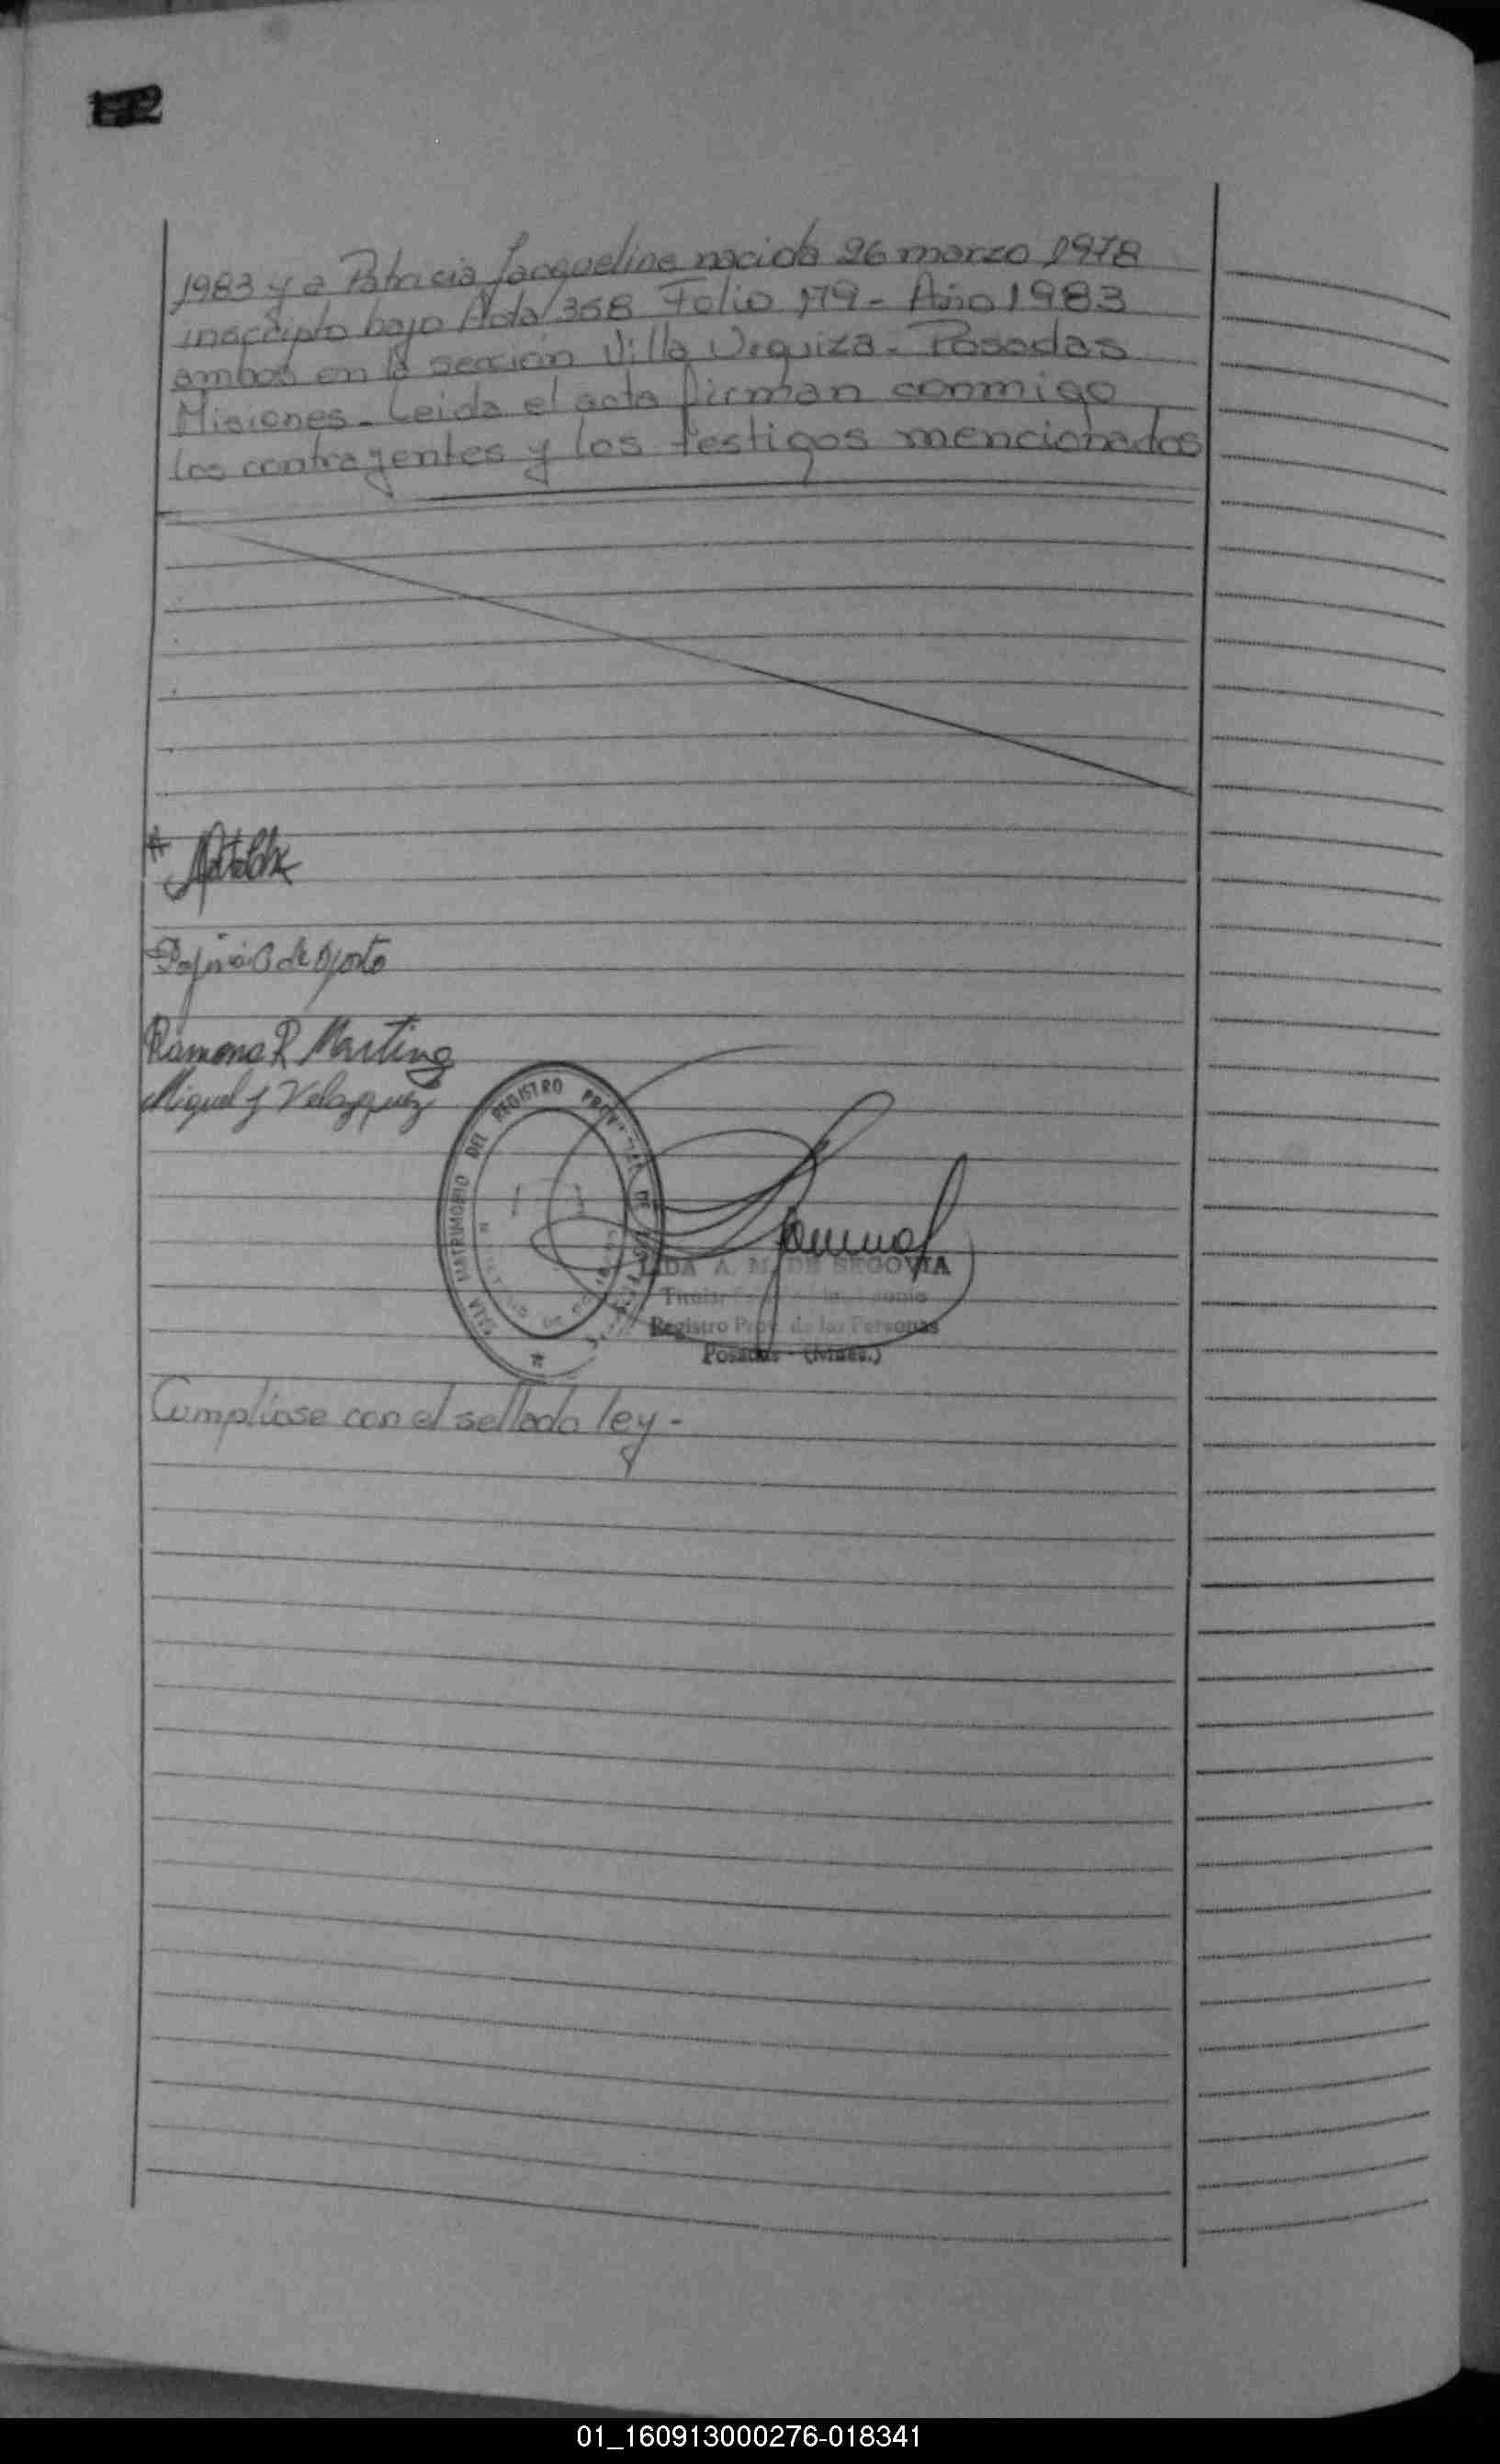 1983 y a Patricia Jacqueline nacida 26 marzo 1978
inscripto bajo Acta 358 Folio 179 - Año 1983
ambos en la sección Villa Urquiza - Posadas
Misiones - Leida el acta firman conmigo
los contrayentes y los testigos mencionados
Ramona R Martinez
Miguel J Velazquez
SALA MATRIMONIO DEL REGISTRO DE LAS
LIDA A. M. DE SEGOVIA
Titular
Registro Prov. de las Personas
Posadas - (Mnes.)
Cumpliose con el sellado ley -
01_160913000276-018341